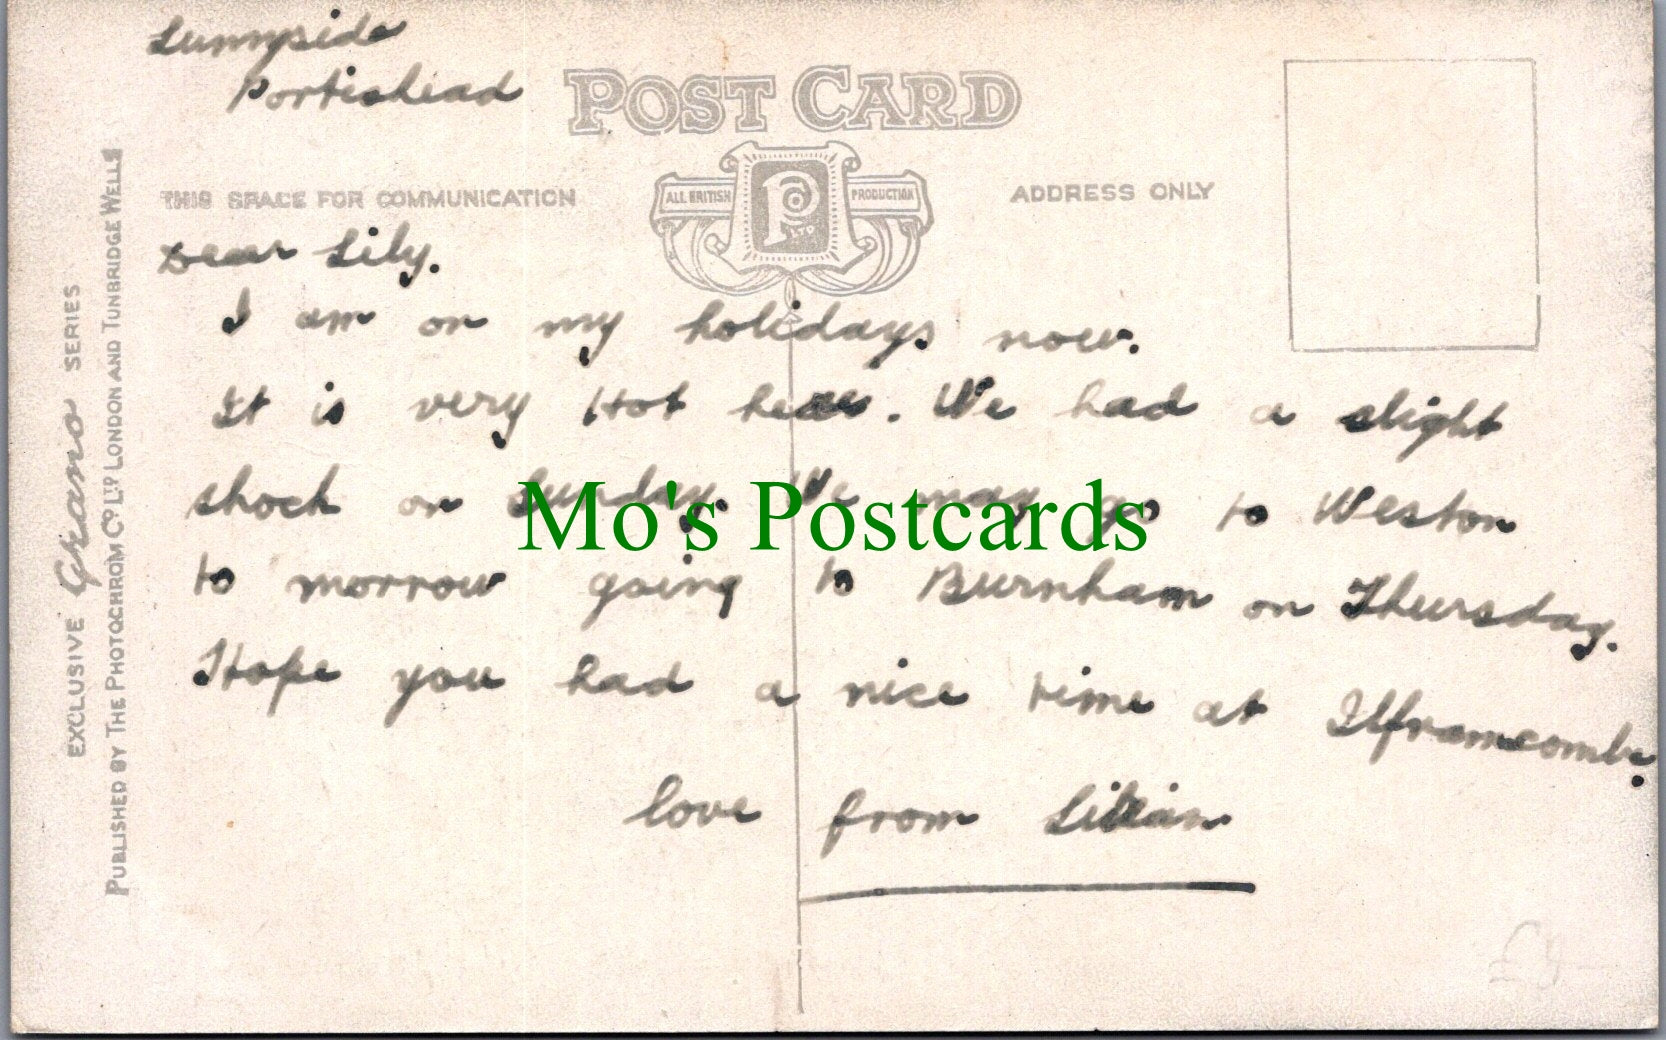 Sunnyside
Portishead
POST CARD
ALL BRITISH PRODUCTION
P LTD
THIS SPACE FOR COMMUNICATION
ADDRESS ONLY
Dear Lily.
I am on my holidays now.
It is very Hot here. We had a slight
shock on Sunday. We may go to Weston
to morrow going to Burnham on Thursday.
Hope you had a nice time at Ilframcombe.
love from Lillian
EXCLUSIVE Grano SERIES
PUBLISHED BY THE PHOTOCHROM CO. LTD. LONDON AND TUNBRIDGE WELLS
Mo's Postcards
£9-